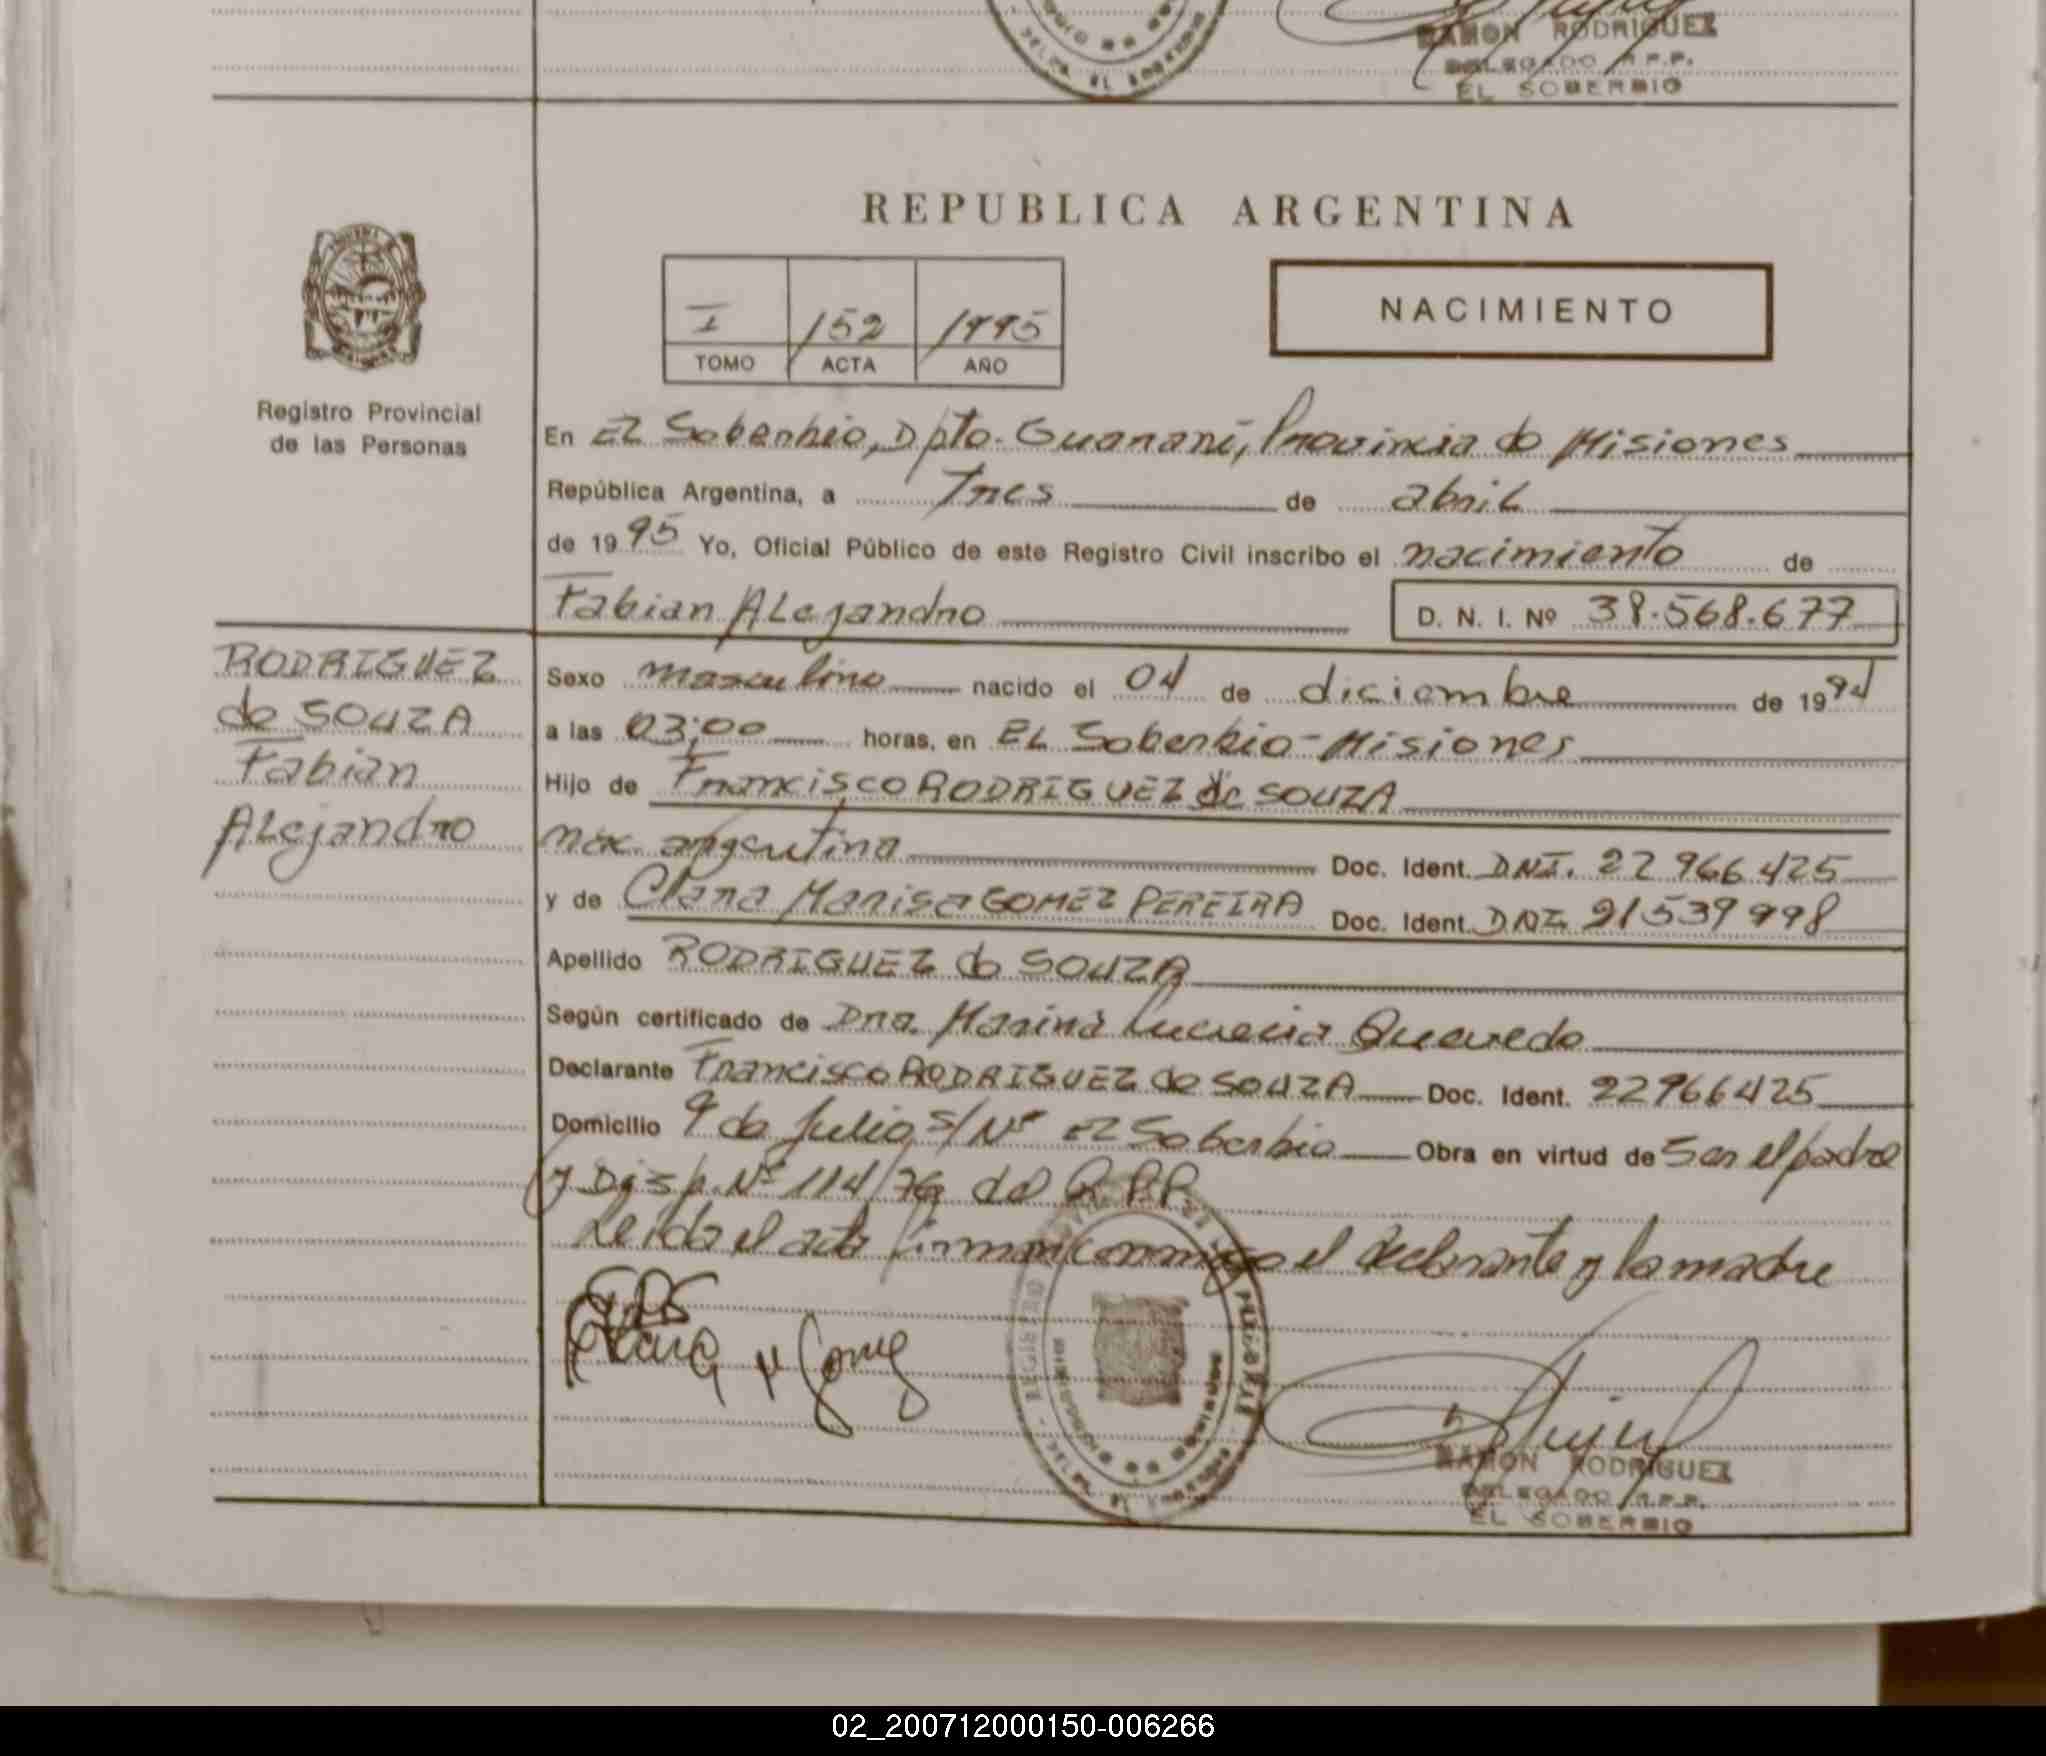 RAMON RODRIGUEZ
DELEGADO R.P.P.
EL SOBERBIO
REPUBLICA ARGENTINA
I 152 1995
TOMO ACTA AÑO
NACIMIENTO
Registro Provincial
de las Personas
En El Soberbio, Dpto. Guaraní, Provincia de Misiones
República Argentina, a Tres de abril
de 1995 Yo, Oficial Público de este Registro Civil inscribo el nacimiento de
Fabian Alejandro D. N. I. Nº 38.568.677
RODRIGUEZ
de SOUZA
Fabian
Alejandro
Sexo masculino nacido el 04 de diciembre de 1994
a las 03:00 horas, en El Soberbio - Misiones
Hijo de Francisco RODRIGUEZ de SOUZA
nac. argentina Doc. Ident. DNI. 22 966 425
y de Clara Marisa GOMEZ PEREIRA Doc. Ident. DNI. 21539998
Apellido RODRIGUEZ de SOUZA
Según certificado de Dra. Marina Lucrecia Quevedo
Declarante Francisco RODRIGUEZ de SOUZA Doc. Ident. 22966425
Domicilio 9 de Julio s/Nº El Soberbio Obra en virtud de Ser el padre
y Disp. Nº 114/76 del R.P.P.
Leida el acta firman conmigo el declarante y la madre
Clara M Gomez
RAMON RODRIGUEZ
DELEGADO R.P.P.
EL SOBERBIO
02_200712000150-006266